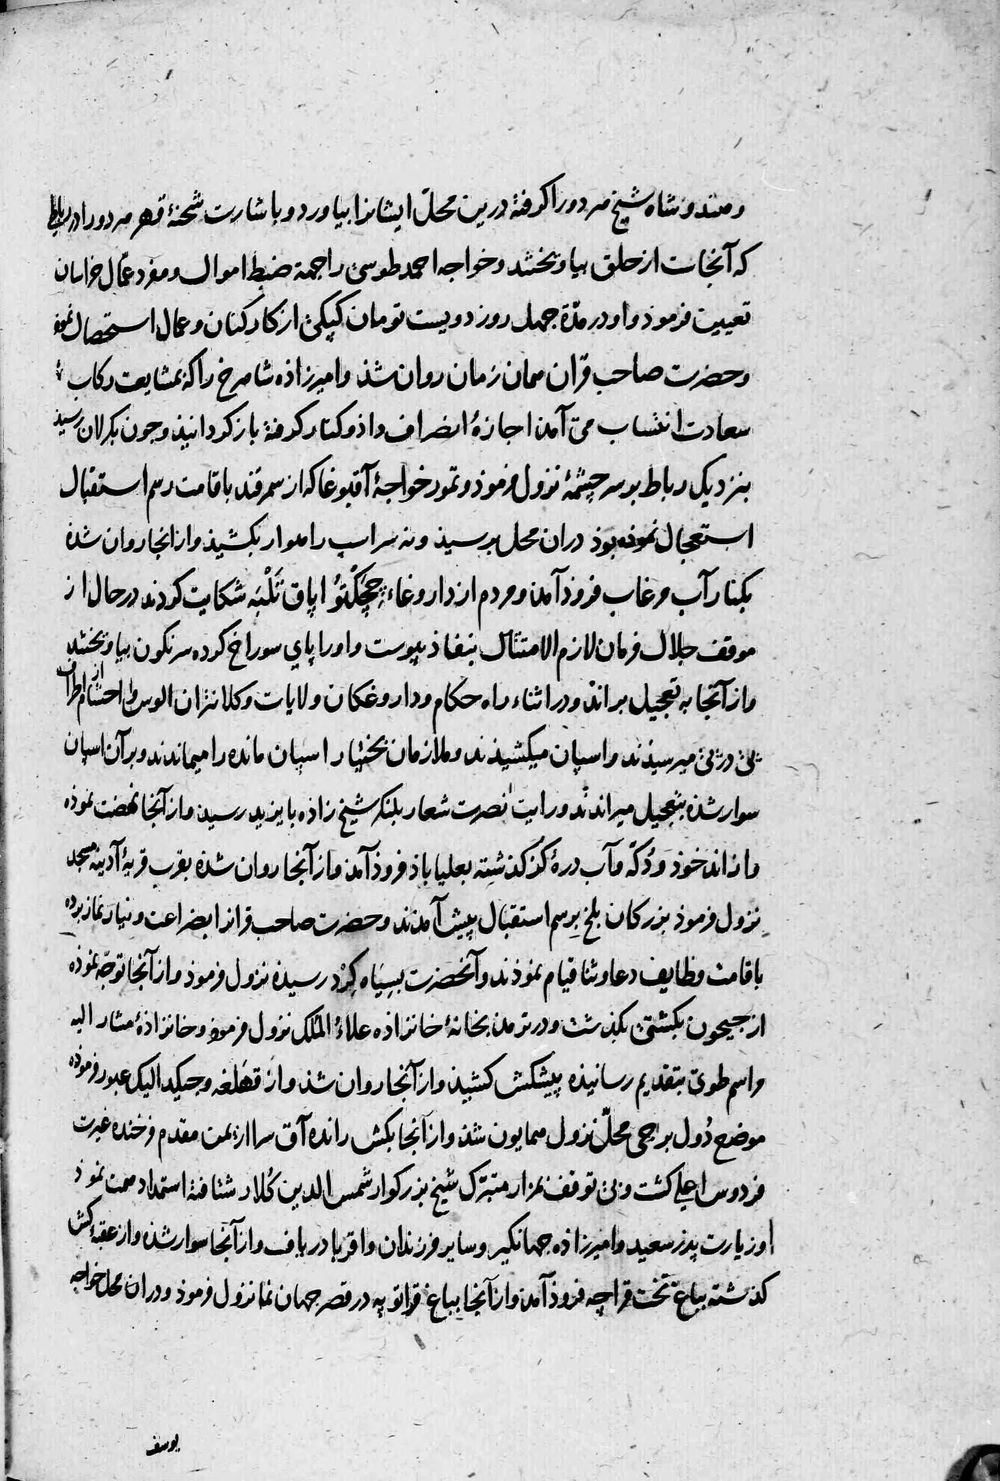 و هندو شاه شیخ هر دو را گرفته درین محل ایشانرا بیاورد و باشارت شحنهٔ قهر هر دو را در رباطی
که آنجاست از حلق بیاویختند و خواجه احمد طوسی را جهة ضبط اموال و مفرد عمّال خراسان
تعیین فرموذ و او در مدّة جهل روز دویست تومان کپکی از کارکنان و عمال استحصال نموذ
و حضرت صاحب قران همان زمان روان شذ و امیرزاذه شاهرخ را که بمشایعت رکاب
سعادت انتساب می آمذ اجازهٔ انصراف داذ و کنار کرفته باز کردانیذ و جون بکرلان رسیذ
بنزدیک رباط بوسر چشمهٔ نزول فرموذ و تمور خواجهٔ آقبوغا که از سمرقند باقامت رسم استقبال
استعجال نموذه بوذ دران محل برسیذ و نه سر اسپ راهوار بکشیذ و از انجا روان شذه
بکنار آب مرغاب فروذ آمذ و مردم از داروغاء چچکتو اپاق تلبه شکایت کردند در حال از
موقف جلال فرمان لازم الامتثال بنفاذ پیوست و او را پاي سوراخ کرده سرنکون بیاویختند
و از آنجا به تعجیل براند و در اثناء راه حکام و داروغکان ولایات و کلانتران الوس و احشام از اطراف
پی در پی میرسیذند و اسپان میکشیذند و ملازمان بختیار اسپان مانده را میماندند و بر آن اسپان
سوار شذه بتعجیل میراندند و رایت نصرت شعار بلنکر شیخ زاده بایزید رسید و از آنجا نهضت نموذه
و از اندخوذ و دکه و آب درهٔ کز کذشته بعلیاباذ فروذ آمذ و از آنجا روان شذه بقرب قریهٔ آدینه مسجد
نزول فرموذ بزرکان بلخ برسم استقبال پیش آمذند و حضرت صاحب قرانرا بضراعت و نیاز نماز برده
باقامت وظایف دعا و ثنا قیام نموذند و آنحضرت بسیاه کرد رسیذه نزول فرموذ و از آنجا توجّه نموذه
از جیحون بکشتی بکذشت و در ترمذ بخانهٔ خانزاذه علاء الملک نزول فرموذ و خانزاذهٔ مشار الیه
مراسم طوی بتقدیم رسانیذه پیشکش کشیذ و از آنجا روان شذ و از قهلغه و جیکدالیک عبور فرموذه
موضع دول برجی محلّ نزول همایون شذ و از آنجا بکش رانده آق سرا از یمن مقدم فرخنده غیرت
فردوس اعلی کشت و بی توقف بمزار متبرک شیخ بزرکوار شمس الدین کلار شتافته استمداد همت نموذ
و زیارت پدر سعید و امیرزاذه جهانکیر و سایر فرزندان و اقربا دریافت و از آنجا سوار شذه و از عقبهٔ کش
کذشته بباغ تخت قراچه فروذ آمذ و از آنجا بباغ قراتوپه در قصر جهان نما نزول فرموذ و دران محل خواجه
یوسف